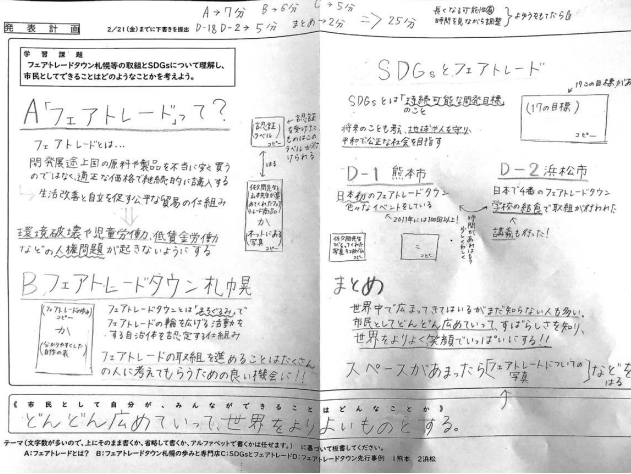 A→7分 B→6分 C→5分
D-1 D-2→5分 まとめ→2分 ⇒25分
長くなる可能性
時間を見ながら調整
発表計画
2/21(金)までに下書きを提出
学習課題
フェアトレードタウン札幌等の取組とSDGsについて理解し、
市民としてできることはどのようなことかを考えよう。
A「フェアトレード」って?
フェアトレードとは…
開発途上国の原料や製品を不当に安く買う
のではなく、適正な価格で継続的に購入する
生活改善と自立を促す公平な貿易の仕組み
環境破壊や児童労働、低賃金労働
などの人権問題が起きないようにする
認証ラベル
コピー
はる
か
ネットにある
写真
B フェアトレードタウン札幌
コピー
か
自作の表
フェアトレードタウンとは"まちぐるみ"で
フェアトレードの輪を広げる活動を
する自治体を認定する仕組み
フェアトレードの取組を進めることはたくさん
の人に考えてもらうための良い機会に!!
SDGsとフェアトレード
SDGsとは「持続可能な開発目標」
のこと
将来のことも考え、地球や人を守り、
平和で公正な社会を目指す
17この目標が
(17の目標)
コピー
D-1 熊本市
日本初のフェアトレードタウン
色々なイベントをしている
D-2 浜松市
日本で4番のフェアトレードタウン
学校の給食で取組が行われた
講義も行った!
コピー
まとめ
世界中で広まってきてはいるがまだ知らない人も多い。
市民としてどんどん広めていって、すばらしさを知り、
世界をよりよく笑顔でいっぱいにする!!
スペースがあまったら[フェアトレードについての写真]などを
はる
《市民として自分が、みんなができることはどんなことか》
どんどん広めていって、世界をよりよいものとする。
テーマ(文字数が多いので、上にそのまま書くか、省略して書くか、アルファベットで書くかは任せます。)に基づいて板書してください。
A:フェアトレードとは? B:フェアトレードタウン札幌の歩みと専門店C:SDGsとフェアトレードD:フェアトレードタウン先行事例 1熊本 2浜松